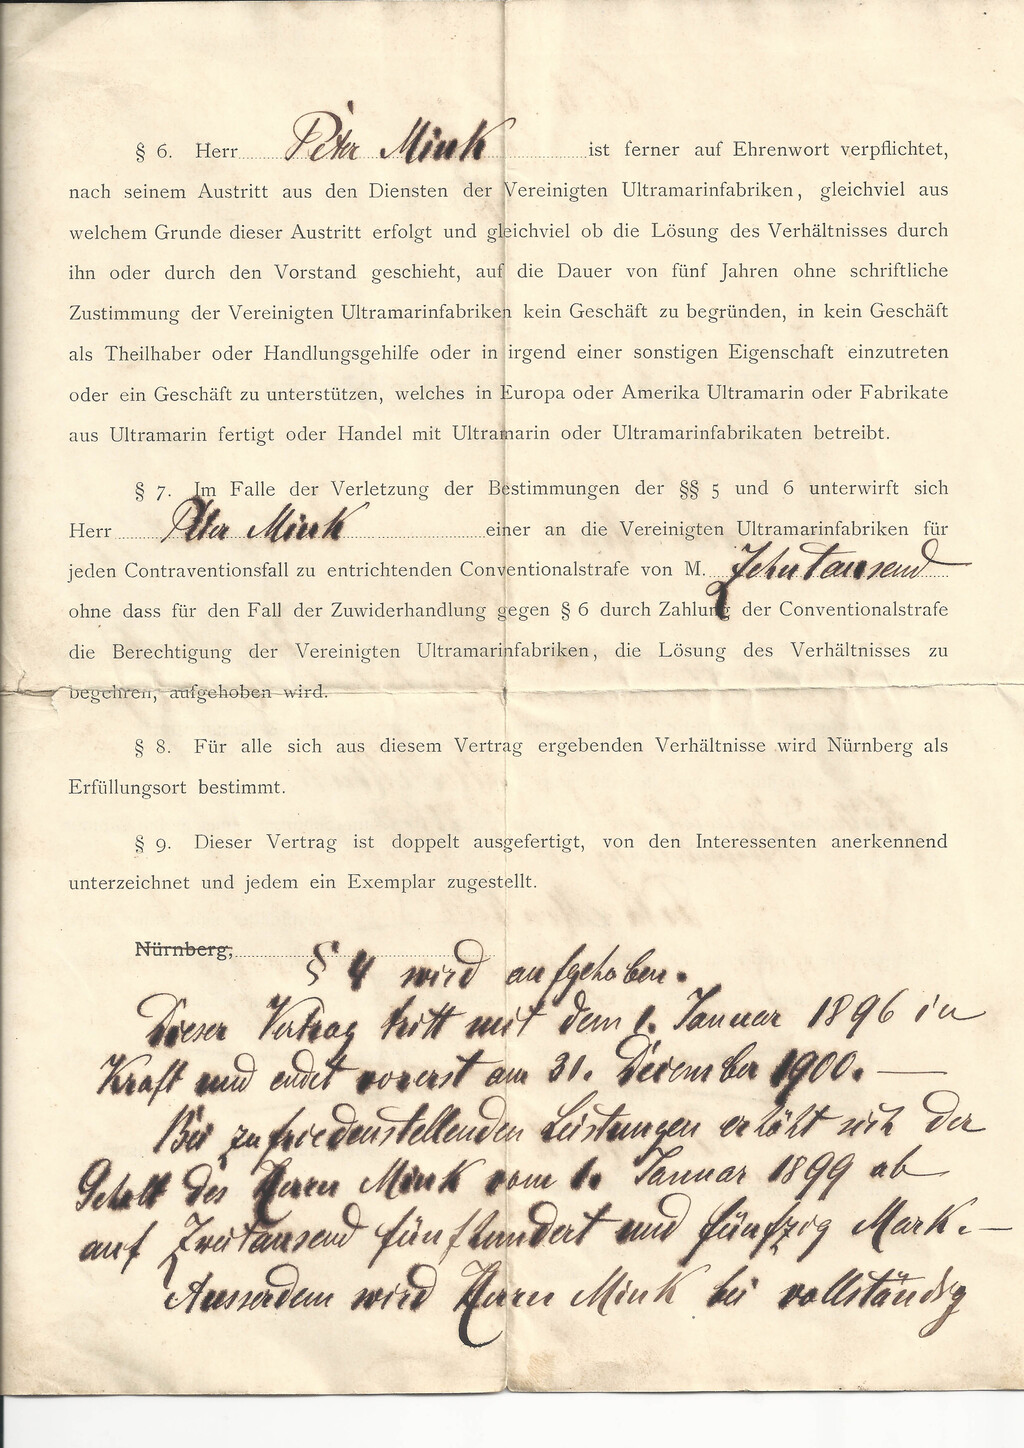 § 6. Herr Peter Mink ist ferner auf Ehrenwort verpflichtet,
nach seinem Austritt aus den Diensten der Vereinigten Ultramarinfabriken, gleichviel aus
welchem Grunde dieser Austritt erfolgt und gleichviel ob die Lösung des Verhältnisses durch
ihn oder durch den Vorstand geschieht, auf die Dauer von fünf Jahren ohne schriftliche
Zustimmung der Vereinigten Ultramarinfabriken kein Geschäft zu begründen, in kein Geschäft
als Theilhaber oder Handlungsgehilfe oder in irgend einer sonstigen Eigenschaft einzutreten
oder ein Geschäft zu unterstützen, welches in Europa oder Amerika Ultramarin oder Fabrikate
aus Ultramarin fertigt oder Handel mit Ultramarin oder Ultramarinfabrikaten betreibt.
§ 7. Im Falle der Verletzung der Bestimmungen der §§ 5 und 6 unterwirft sich
Herr Peter Mink einer an die Vereinigten Ultramarinfabriken für
jeden Contraventionsfall zu entrichtenden Conventionalstrafe von M. Zehntausend
ohne dass für den Fall der Zuwiderhandlung gegen § 6 durch Zahlung der Conventionalstrafe
die Berechtigung der Vereinigten Ultramarinfabriken, die Lösung des Verhältnisses zu
begehren, aufgehoben wird.
§ 8. Für alle sich aus diesem Vertrag ergebenden Verhältnisse wird Nürnberg als
Erfüllungsort bestimmt.
§ 9. Dieser Vertrag ist doppelt ausgefertigt, von den Interessenten anerkennend
unterzeichnet und jedem ein Exemplar zugestellt.
Nürnberg,
§ 4 wird aufgehoben.
Dieser Vertrag tritt mit dem 1. Januar 1896 in
Kraft und endet vorerst am 31. Dezember 1900. —
Bei zufriedenstellenden Leistungen erhöht sich der
Gehalt des Herrn Mink vom 1. Januar 1899 ab
auf Zweitausend fünfhundert und fünfzig Mark. —
Ausserdem wird Herrn Mink bei vollständig